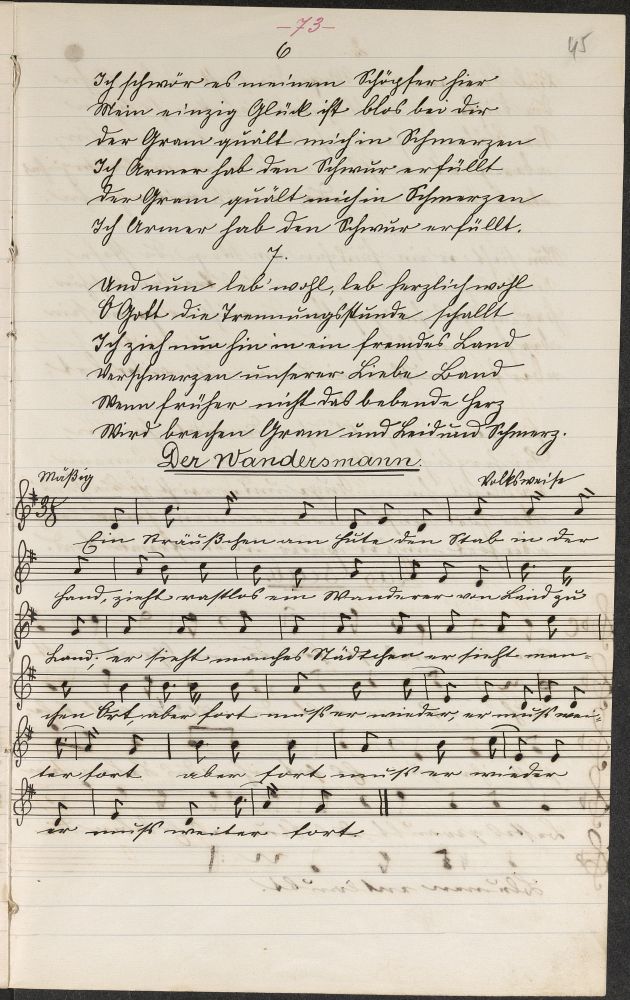 -73-
45
6
Ich schwör es meinem Schöpfer hier
Mein einzig Glück ist blos bei dir
Der Gram quält mich in Schmerzen
Ich Armer hab den Schwur erfüllt
Der Gram quält mich in Schmerzen
Ich Armer hab den Schwur erfüllt.
7.
Und nun leb' wohl, leb herzlich wohl
O Gott die Trennungsstunde schallt
Ich zieh nun hin in ein fremdes Land
Verschmerzen unserer Liebe Band
Wenn früher nicht das bebende Herz
Wird brechen Gram und Leid und Schmerz.
Der Wandersmann.
Mäßig
Volksweise
3/8
Ein Sträußchen am Hute den Stab in der
Hand, zieht rastlos ein Wanderer von Land zu
Land; er sieht manches Städtchen er sieht man-
chen Ort, aber fort muß er wieder, er muß wei-
ter fort aber fort muß er wieder
er muß weiter fort.